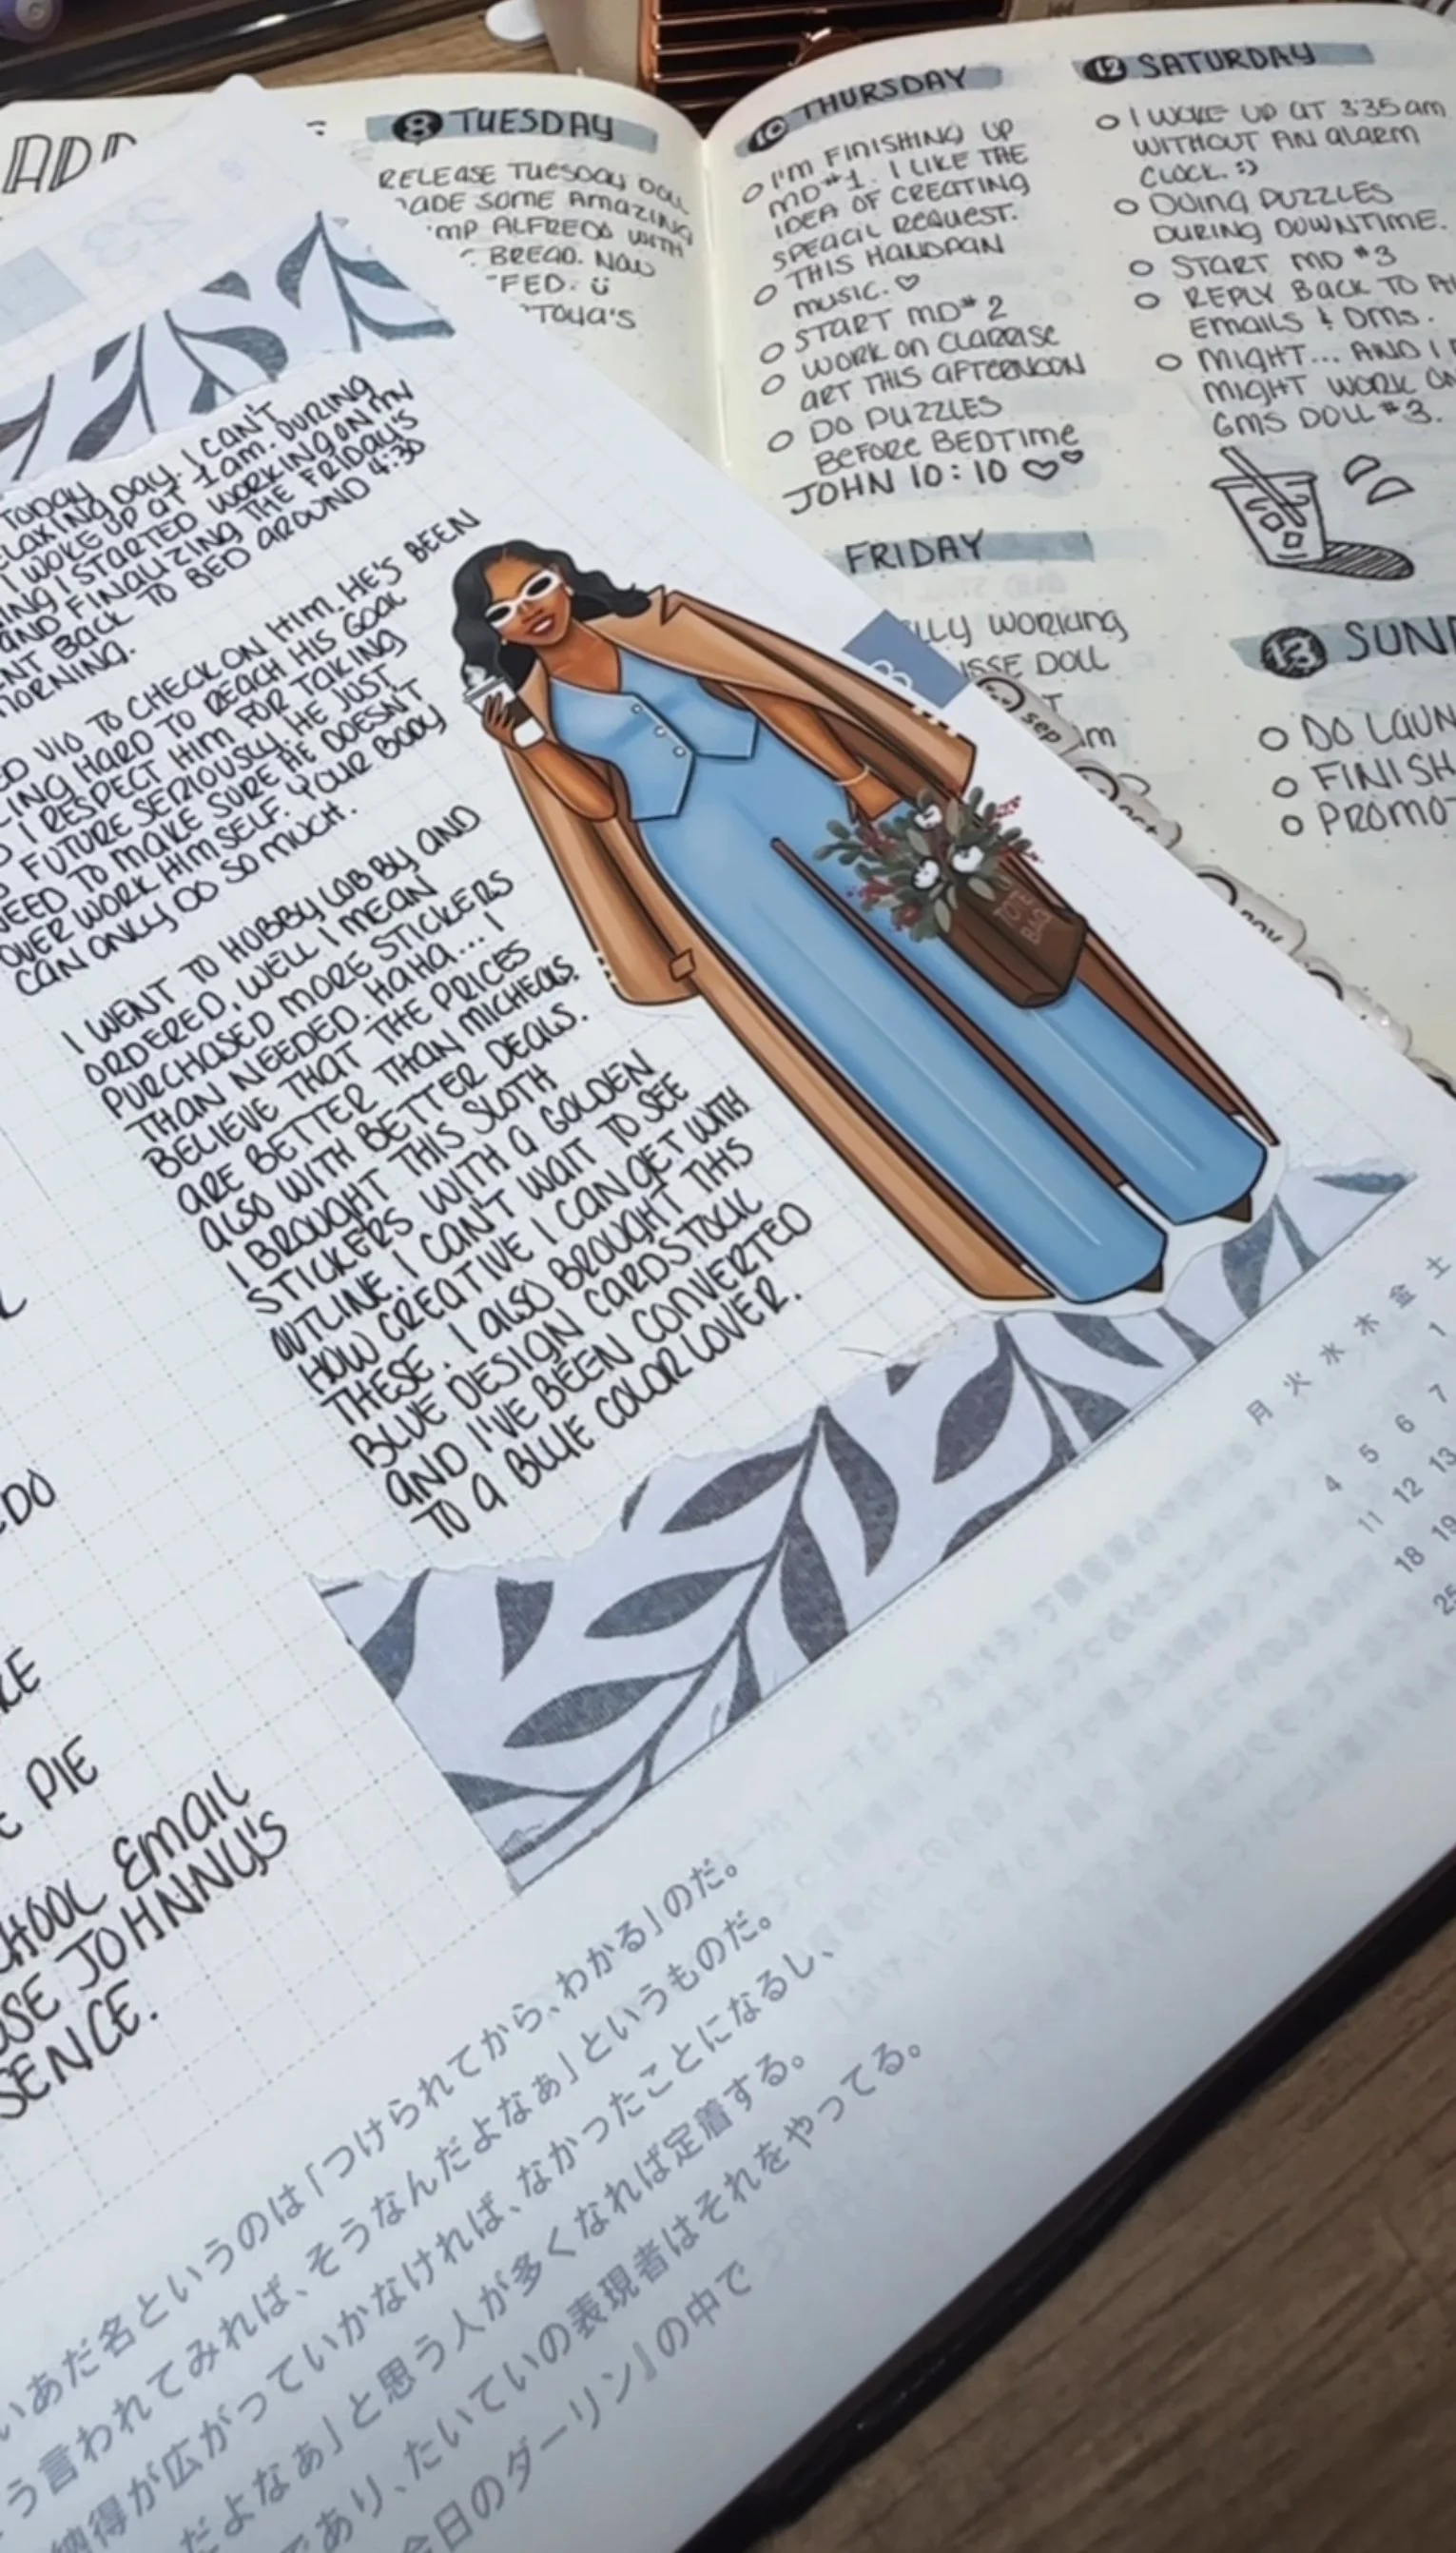 8 TUESDAY
RELEASE TUESDAY DOLL
MADE SOME AMAZING
ALFREDO WITH
BREAD. NOW
FED.
TOYA'S
10 THURSDAY
I'M FINISHING UP
MD #1. I LIKE THE
IDEA OF CREATING
SPEACIL REQUEST.
THIS HANDPAN
MUSIC. ♡
START MD# 2
WORK ON CLARRISE
ART THIS AFTERNOON
DO PUZZLES
BEFORE BEDTIME
JOHN 10:10 ♡♡
FRIDAY
WORKING
DOLL
12 SATURDAY
I WOKE UP AT 3:35am
WITHOUT AN ALARM
CLOCK. :)
DOING PUZZLES
DURING DOWNTIME.
START MD #3
REPLY BACK TO
EMAILS & DMS.
MIGHT... AND I
MIGHT WORK ON
GMS DOLL #3.
13
DO
FINISH
PROMO
sep
nov
TODAY
DAY. I CAN'T
I WOKE UP AT 1am. DURING
I STARTED WORKING ON MY
AND FINALIZING THE FRIDAY'S
BACK TO BED AROUND 4:30
MORNING.
VIO TO CHECK ON HIM. HE'S BEEN
HARD TO REACH HIS GOAL
I RESPECT HIM FOR TAKING
FUTURE SERIOUSLY. HE JUST
NEED TO MAKE SURE HE DOESN'T
OVER WORK HIMSELF. YOUR BODY
CAN ONLY DO SO MUCH.
I WENT TO HOBBY LOBBY AND
ORDERED, WELL I MEAN
PURCHASED MORE STICKERS
THAN NEEDED. HAHA... I
BELIEVE THAT THE PRICES
ARE BETTER THAN MICHEALS.
ALSO WITH BETTER DEALS.
I BROUGHT THIS SLOTH
STICKERS WITH A GOLDEN
OUTLINE. I CAN'T WAIT TO SEE
HOW CREATIVE I CAN GET WITH
THESE. I ALSO BROUGHT THIS
BLUE DESIGN CARDSTOCK
AND I'VE BEEN CONVERTED
TO A BLUE COLOR LOVER.
TOTE
BAG
PIE
EMAIL
JOHNNY'S
月 火 水 木 金 土
1
4 5 6 7
11 12 13
18 19
25
いあだ名というのは「つけられてから、わかる」のだ。
う言われてみれば、そうなんだよなぁ」というものだ。
納得が広がっていかなければ、なかったことになるし、
だよなぁ」と思う人が多くなれば定着する。
であり、たいていの表現者はそれをやってる。
今日のダーリン』の中で